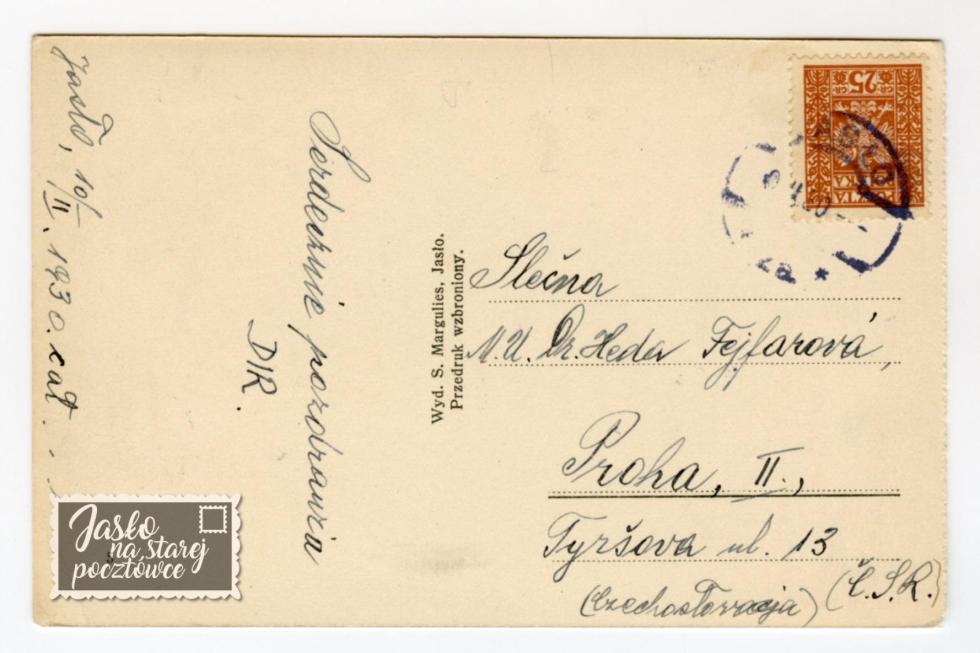 Jasło, 10/II. 1930.
Serdecznie pozdrawia
DIR.
Wyd. S. Margulies, Jasło.
Przedruk wzbroniony.
25
GR
GR
POCZTA
POLSKA
JASŁO
Slečna
M.U. Dr. Heda Fejfarová,
Praha, II.,
Tyršova ul. 13
(Czechosłowacja) (Č.S.R.)
Jasło
na starej
pocztówce